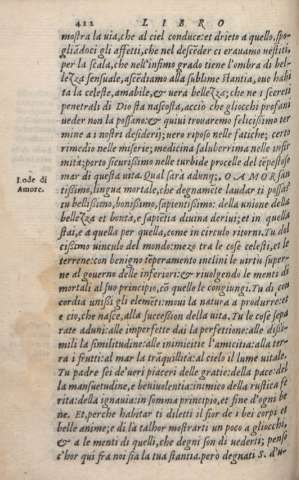 412 LIBRO
mostra la uia, che al ciel conduce: et drieto a quello, spo-
gliādoci gli affetti, che nel descēder ci erauamo uestiti,
per la scala, che nell'infimo grado tiene l'ombra di bel-
lezza sensuale, ascēdiamo alla sublime stantia, oue habi
ta la celeste, amabile, & uera bellezza; che ne i secreti
penetrali di Dio sta nascosta, acciò che gliocchi profani
ueder non la possano: & quiui trouaremo felicissimo ter
mine a i nostri desiderij; uero riposo nelle fatiche; certo
rimedio nelle miserie; medicina saluberrima nelle infir
mità; porto sicurissimo nelle turbide procelle del tēpestoso
mar di questa uita. Qual sarà adunq;, O AMOR san
Lode di
Amore.
tissimo, lingua mortale, che degnamēte laudar ti possa?
tu bellissimo, bonissimo, sapientissimo: della unione della
bellezza et bontà, e sapiētia diuina deriui; et in quella
stai, e a quella per quella, come in circulo ritorni. Tu dol
cissimo uinculo del mondo: mezo tra le cose celesti, et le
terrene: con benigno tēperamento inclini le uirtù super-
ne al gouerno delle inferiori: & riuolgendo le menti di
mortali al suo principio, cō quello le congiungi. Tu di con
cordia unisci gli elemēti: moui la natura a produrre: et
e ciò, che nasce, alla succession della uita. Tu le cose sepa
rate aduni: alle imperfette dai la perfettione: alle dissi-
mili la similitudine: alle inimicitie l'amicitia: alla ter-
ra i frutti: al mar la trāquillità: al cielo il lume uitale.
Tu padre sei de'ueri piaceri delle gratie: della pace: del
la mansuetudine, e beniuolentia: inimico della rustica fe
rità: della ignauia: in somma principio, et fine d'ogni be
ne. Et, perche habitar ti diletti il fior de i bei corpi et
belle anime; e di là talhor mostrarti un poco a gliocchi,
& a le menti di quelli, che degni son di uederti; penso
c'hor qui fra noi sia la tua stantia. però degnati S. d'u-